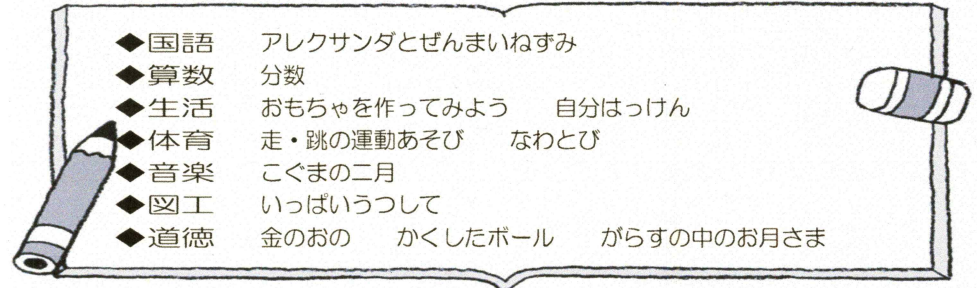 ◆国語　アレクサンダとぜんまいねずみ
◆算数　分数
◆生活　おもちゃを作ってみよう　自分はっけん
◆体育　走・跳の運動あそび　なわとび
◆音楽　こぐまの二月
◆図工　いっぱいうつして
◆道徳　金のおの　かくしたボール　がらすの中のお月さま